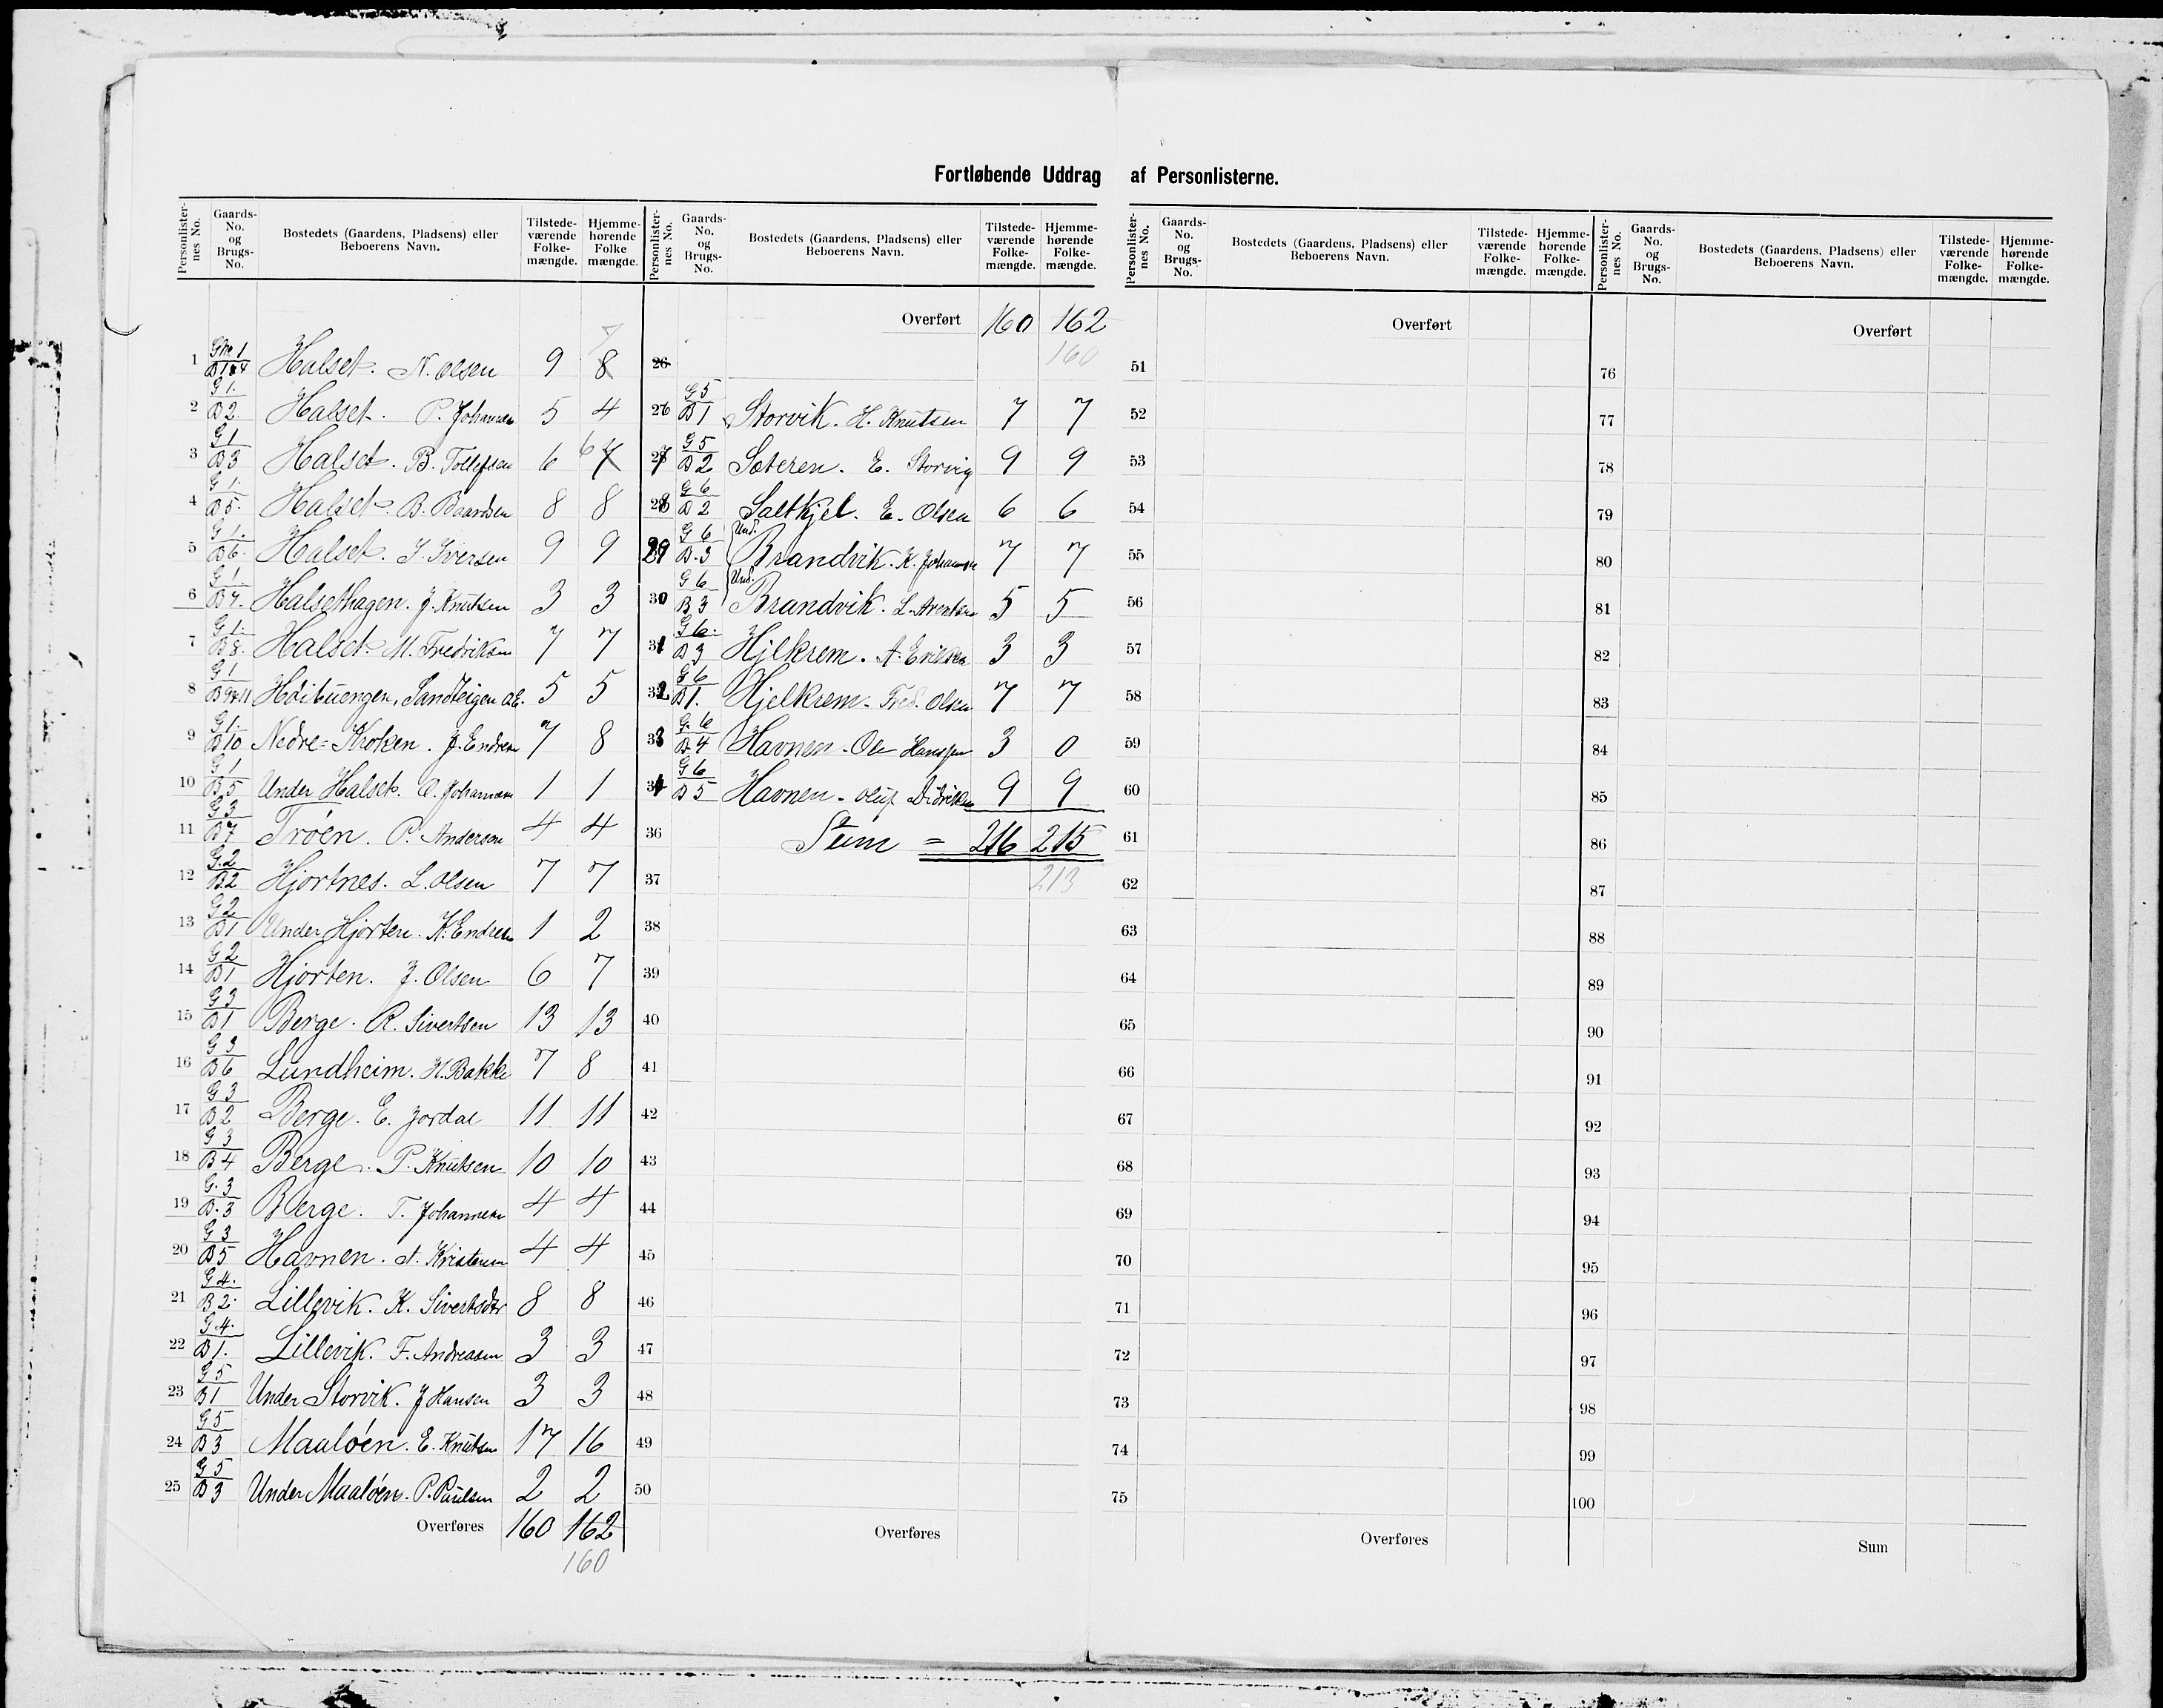 Fortløbende Uddrag af Personlisterne.
Personlister-nes No. Gaards-No. og Brugs-No. Bostedets (Gaardens, Pladsens) eller Beboerens Navn. Tilstede-værende Folke-mængde. Hjemme-hørende Folke mængde.
1 GNo 1 B 1&4 Halset. N. Olsen 9 8 7
2 G 1. B 2. Halset. P. Johannes 5 4
3 G 1 B 3 Halset. B. Tollefsen 6 7 6
4 G 1. B 5. Halset B. Baardsen 8 8
5 G 1. B 6. Halset. I. Iversen 9 9
6 G 1 B 7. Halsethagen. J. Knutsen 3 3
7 G 1. B 8. Halset. M. Fredriksen 7 7
8 G 1 B 9&11 Høibuengen, Sandteigen O.E. 5 5
9 G 1. B 10 Nedre-Kroken. J. Endresen 7 8
10 G 1 B 5 Under Halset. O. Johannesen 1 1
11 G 3 B 7 Trøen. P. Andersen 4 4
12 G. 2 B. 2 Hjortnes. L. Olsen 7 7
13 G 2 B 1 Under Hjorten. K. Endresen 1 2
14 G 2 B 1 Hjorten. J. Olsen 6 7
15 G 3 B 1 Berge. R. Sivertsen 13 13
16 G 3 B 6 Lundheim. H. Bakke 7 8
17 G 3 B 2 Berge. E. Jordal 11 11
18 G 3 B 4 Berge. P. Knutsen 10 10
19 G. 3 B. 3 Berge. T. Johannesen 4 4
20 G 3 B 5 Havnen. A. Kristensen 4 4
21 G 4. B 2. Lillevik. K. Sivertsdtr 8 8
22 G. 4. B 1. Lillevik. F. Andreasen 3 3
23 G 5 B 1 Under Storvik. J Hansen 3 3
24 G 5 B 3 Maaløen. E. Knutsen 17 16
25 G 5 B 3 Under Maaløen. P. Paulsen 2 2
Overføres 160 162
160
Personlister-nes No. Gaards-No. og Brugs-No. Bostedets (Gaardens, Pladsens) eller Beboerens Navn. Tilstede-værende Folke-mængde. Hjemme-hørende Folke-mængde.
Overført 160 162
26 160
26 G 5 B 1 Storvik. H. Knutsen 7 7
27 G 5 B 2 Sæteren. E. Storvig 9 9
28 G 6 B 2 Saltkjel. E. Olsen 6 6
29 G 6 B. 3 Und. Brandvik. K. Johannsen 7 7
30 G 6 B 3 Und. Brandvik. L. Arentsen 5 5
31 G 6. B 3 Hjelkrem. A. Eriksen 3 3
32 G 6 B 1. Hjelkrem. Fred. Olsen 7 7
33 G. 6 B 4 Havnen. Ole Hanssen 3 0
34 G 6 B 5 Havnen. Oluf Didriksen 9 9
36 Sum = 216 215
37 213
38
39
40
41
42
43
44
45
46
47
48
49
50
Overføres
Personlister-nes No. Gaards-No. og Brugs-No. Bostedets (Gaardens, Pladsens) eller Beboerens Navn. Tilstede-værende Folke-mængde. Hjemme-hørende Folke-mængde.
Overført
51
52
53
54
55
56
57
58
59
60
61
62
63
64
65
66
67
68
69
70
71
72
73
74
75
Overføres
Personlister-nes No. Gaards-No. og Brugs-No. Bostedets (Gaardens, Pladsens) eller Beboerens Navn. Tilstede-værende Folke-mængde. Hjemme-hørende Folke-mængde.
Overført
76
77
78
79
80
81
82
83
84
85
86
87
88
89
90
91
92
93
94
95
96
97
98
99
100
Sum